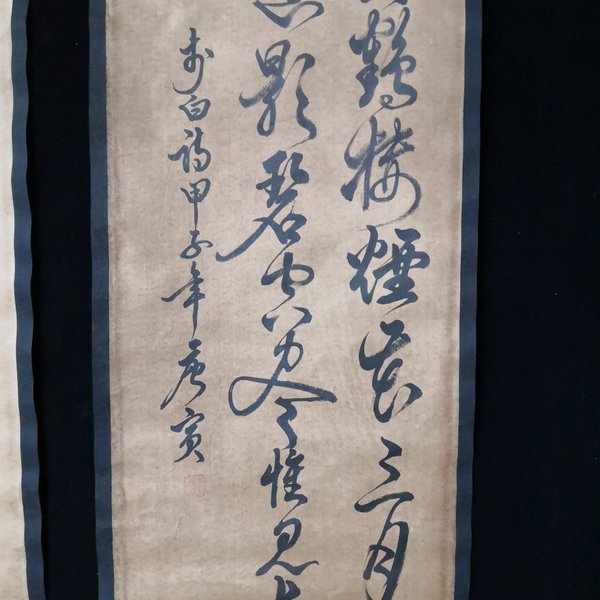 鶴楼煙花三月
影碧空尽惟見
李白詩甲子年唐寅